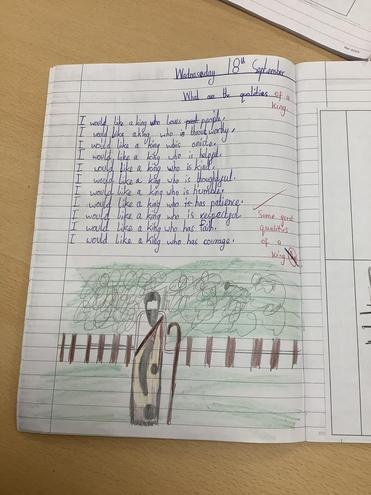 Wadnasaday 18th September
What are the qualities of a
king.
I would like a king who loves people.
I would like a king who is
I would like a king who is
I would like a king who is
I would like a king who is kind.
I would like a king who is thoughtful.
I would like a king who is humble.
I would like a king who has patience.
I would like a king who is respected.
I would like a king who has fath.
I would like a king who has courage.
Some good
qualities
of a
king